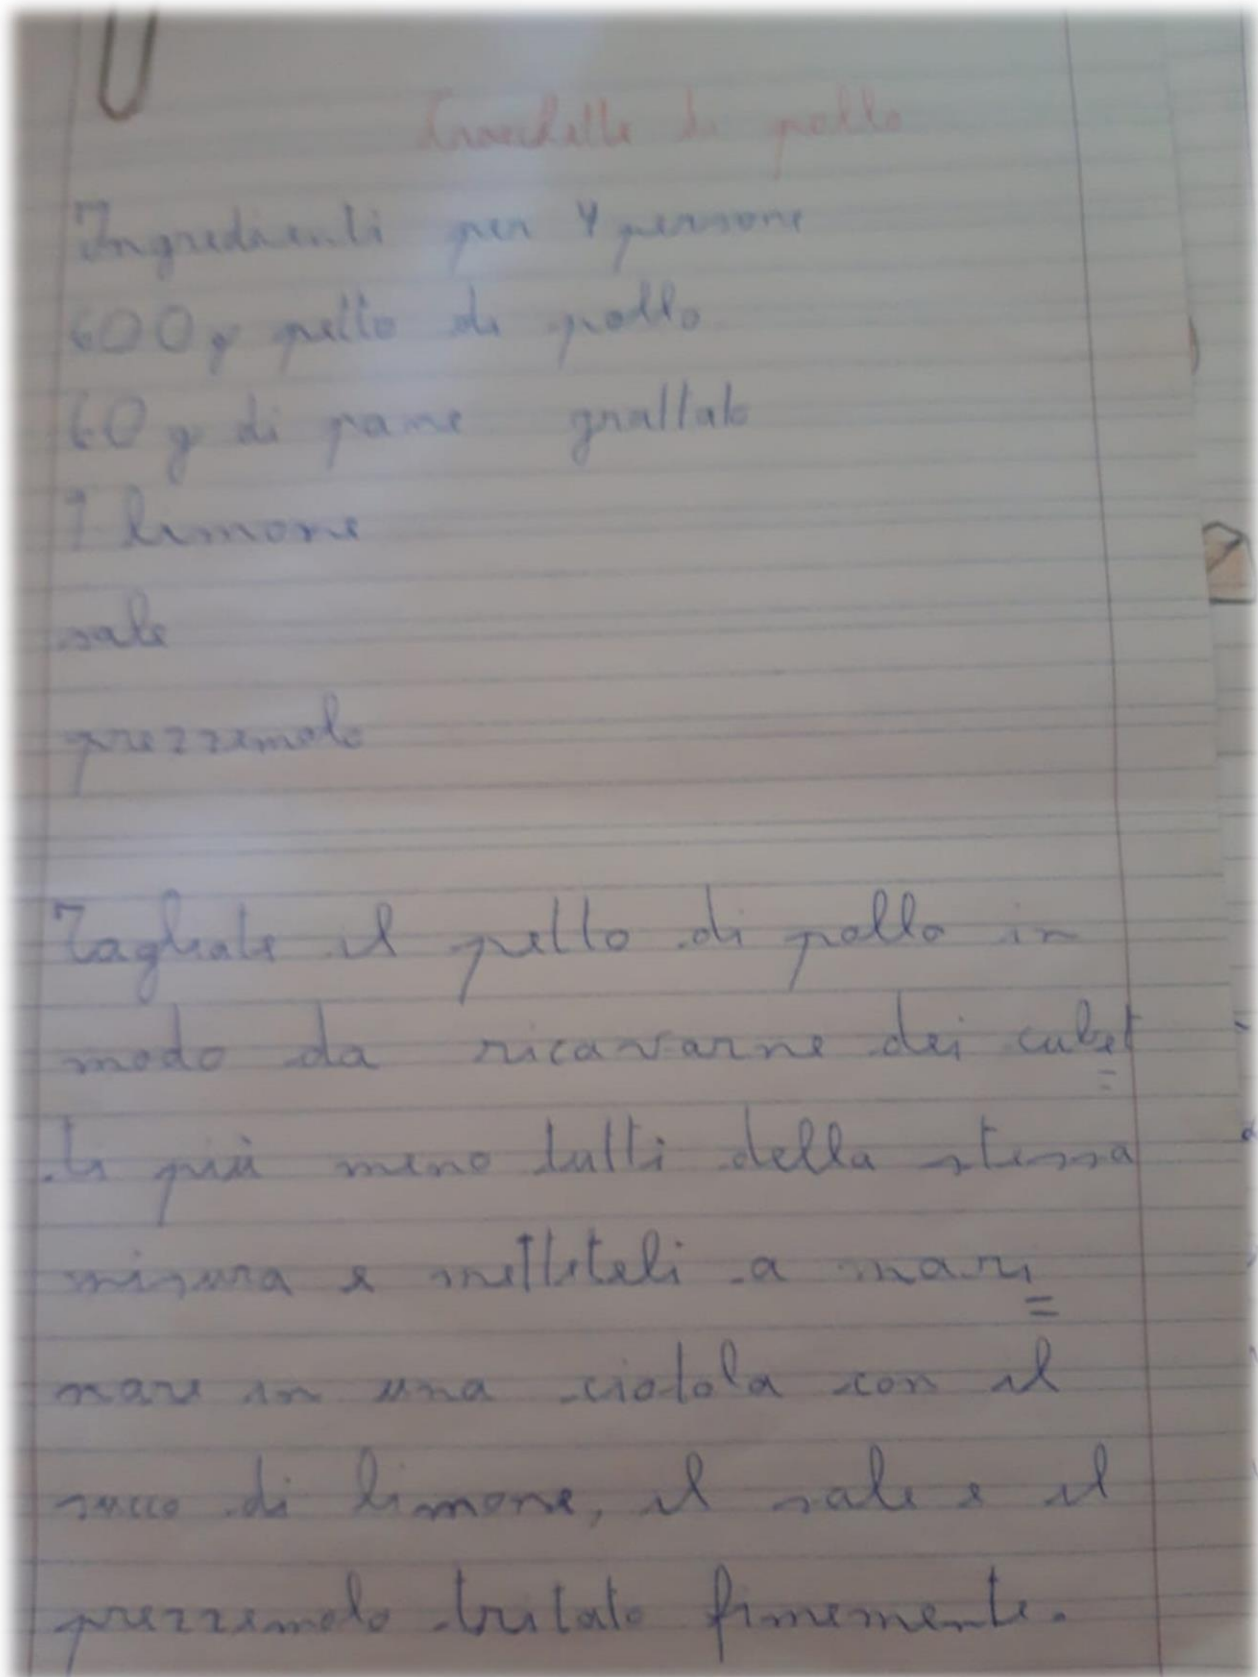 di pollo
Ingredienti per 4 persone
600 g petto di pollo
60 g di pane grattato
1 limone
sale
prezzemolo
Tagliate il petto di pollo in
modo da ricavarne dei cubet
ti più meno tutti della stessa
misura e metteteli a mari
=
nare in una ciotola con il
succo di limone, il sale e il
prezzemolo tritato finemente.